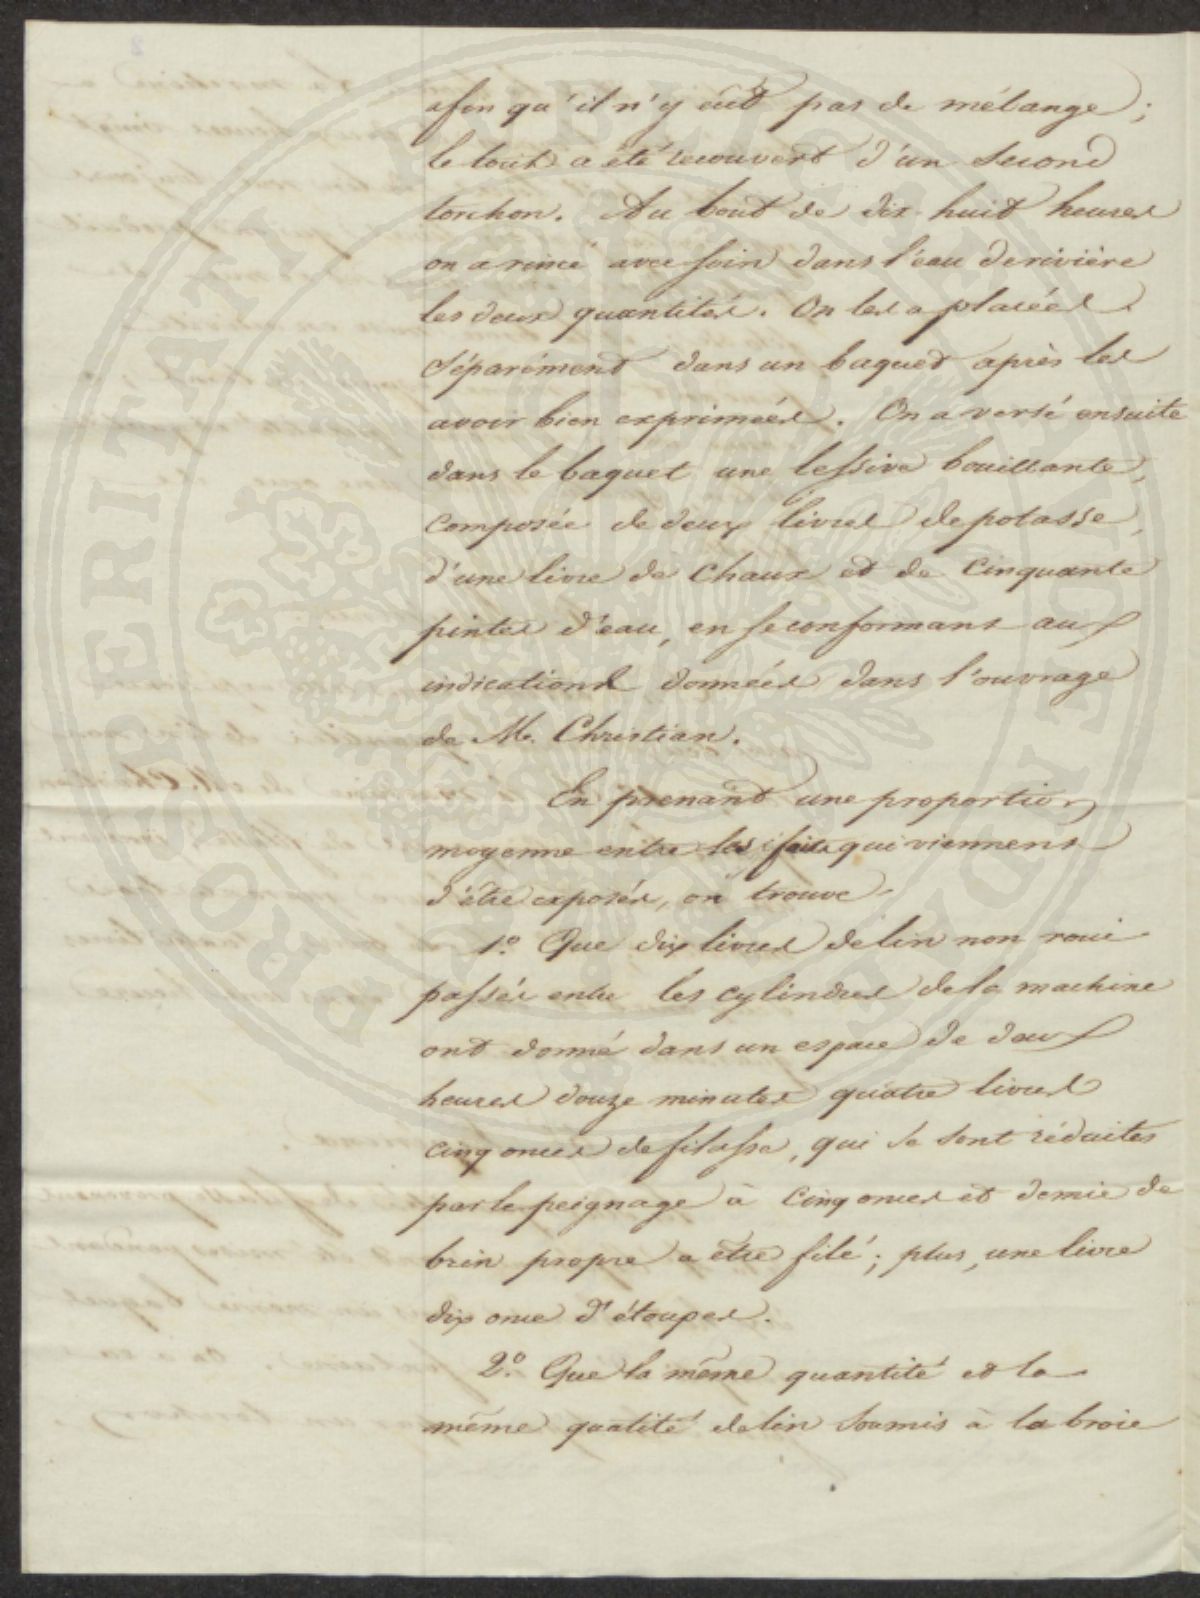 afin qu'il n'y eût pas de mélange;
le tout a été recouvert d'un second
torchon. Au bout de dix-huit heures
on a rincé avec soin dans l'eau de rivière
les deux quantités. On les a placées
séparément dans un baquet après les
avoir bien exprimées. On a versé ensuite
dans le baquet une lessive bouillante,
composée de deux livres de potasse,
d'une livre de chaux et de cinquante
pintes d'eau, en se conformant aux
indications données dans l'ouvrage
de Mr. Christian.
En prenant une proportion
moyenne entre les faits qui viennent
d'être exposés, on trouve
1.º Que dix livres de lin non roui
passées entre les cylindres de la machine
ont donné dans un espace de deux
heures douze minutes quatre livres
cinq onces de filasse, qui se sont réduites
par le peignage à cinq onces et demie de
brin propre a être filé; plus, une livre
dix once d'étoupes.
2.º Que la même quantité et la
même qualité de lin soumis à la broie
PROSPERITATI PUBLICAE VOVENDAE